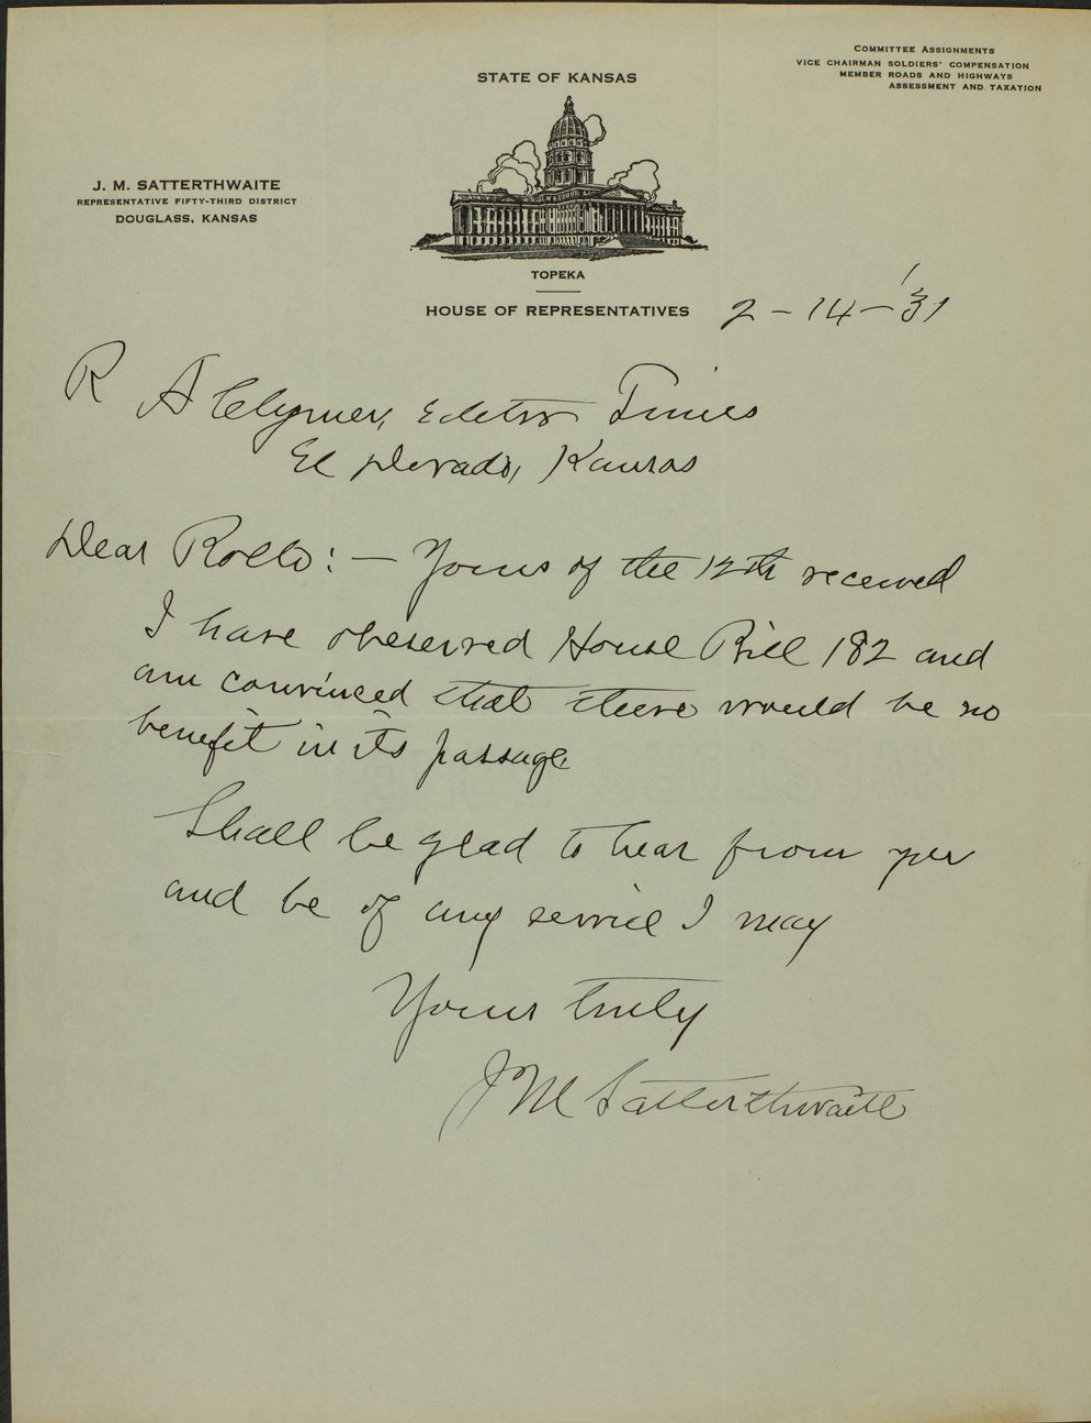 COMMITTEE ASSIGNMENTS
VICE CHAIRMAN SOLDIERS' COMPENSATION
MEMBER ROADS AND HIGHWAYS
ASSESSMENT AND TAXATION
STATE OF KANSAS
J. M. SATTERTHWAITE
REPRESENTATIVE FIFTY-THIRD DISTRICT
DOUGLASS, KANSAS
TOPEKA
HOUSE OF REPRESENTATIVES
2-14-'31
R A Clymer, Editor Times
El Dorado, Kansas
Dear Rollo:- Yours of the 12th received
I have observed House Bill 182 and
am convinced that there would be no
benefit in its passage
Shall be glad to hear from you
and be of any service I may
Yours truly
J M Satterthwaite